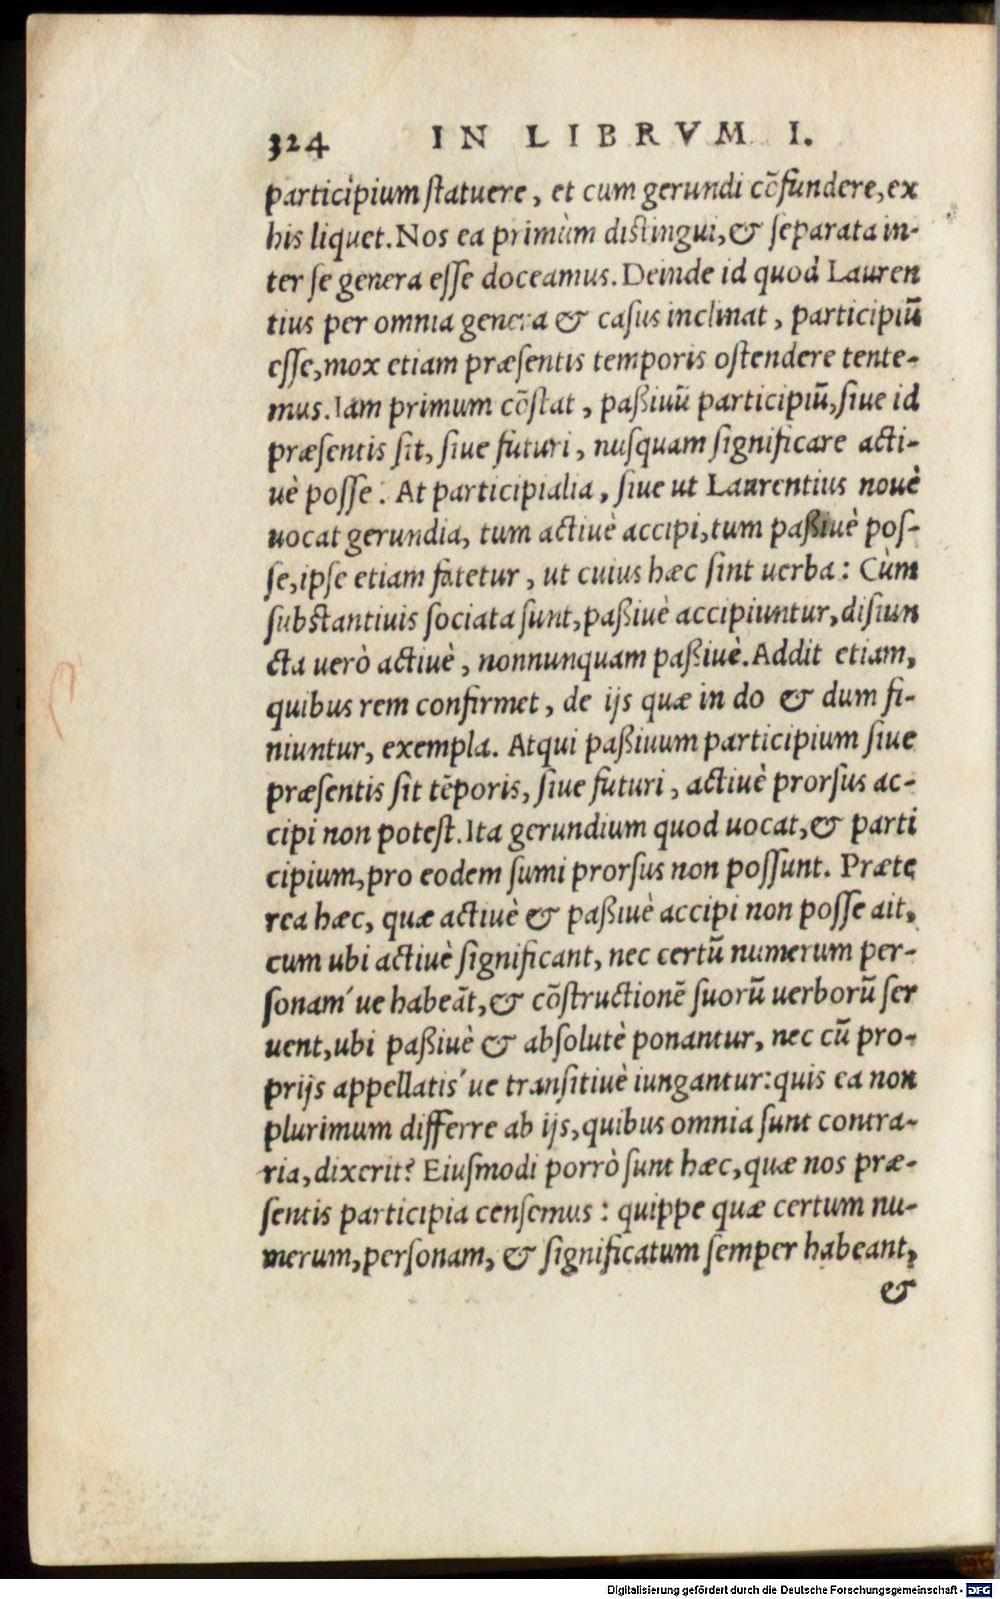 324 IN LIBRVM I.
participium ſtatuere, et cum gerundi cõfundere, ex
his liquet. Nos ea primùm distingui, & ſeparata in-
ter ſe genera eſſe doceamus. Deinde id quod Lauren
tius per omnia genera & caſus inclinat, participiũ
eſſe, mox etiam præſentis temporis oſtendere tente-
mus. Iam primum cõſtat, paßiuũ participiũ, ſiue id
præſentis ſit, ſiue futuri, nuſquam ſignificare acti-
uè poſſe. At participialia, ſiue ut Laurentius nouè
uocat gerundia, tum actiuè accipi, tum paßiuè poſ-
ſe, ipſe etiam fatetur, ut cuius hæc ſint uerba: Cùm
ſubstantiuis ſociata ſunt, paßiuè accipiuntur, diſiun
cta uerò actiuè, nonnunquam paßiuè. Addit etiam,
quibus rem confirmet, de ijs quæ in do & dum fi-
niuntur, exempla. Atqui paßiuum participium ſiue
præſentis ſit tẽporis, ſiue futuri, actiuè prorſus ac-
cipi non poteſt. Ita gerundium quod uocat, & parti
cipium, pro eodem ſumi prorſus non poſſunt. Præte
rea hæc, quæ actiuè & paßiuè accipi non poſſe ait,
cum ubi actiuè ſignificant, nec certũ numerum per-
ſonam´ue habeãt, & cõſtructionẽ ſuorũ uerborũ ſer
uent, ubi paßiuè & abſolutè ponantur, nec cũ pro-
prijs appellatis´ue tranſitiuè iungantur: quis ea non
plurimum differre ab ijs, quibus omnia ſunt contra-
ria, dixerit? Eiuſmodi porrò ſunt hæc, quæ nos præ-
ſentis participia cenſemus: quippe quæ certum nu-
merum, perſonam, & ſignificatum ſemper habeant,
&
Digitalisierung gefördert durch die Deutsche Forschungsgemeinschaft - DFG